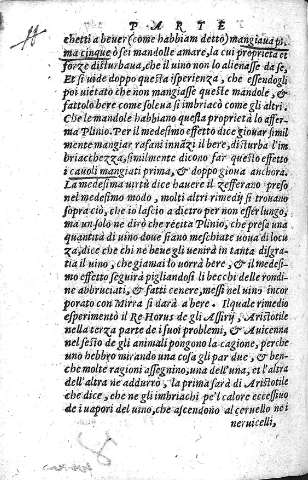 PARTE
chetti a beuer (come habbiam detto) mangiaua pri
ma cinque ò sei mandolle amare, la cui proprietà et
forze disturbaua, che il uino non lo alienasse da se,
Et si uide doppo questa isperienza, che essendogli
poi uietato che non mangiasse queste mandole, &
fattolo bere come soleua si imbriacò come gli altri.
Che le mandole habbiano questa proprietà lo affer-
ma Plinio. Per il medesimo effetto dice giouar simil
mente mangiar rafani innãzi il bere, disturba l'im
briacchezza, similmente dicono far questo effetto
i cauoli mangiati prima, & doppo gioua anchora.
La medesima uirtù dice hauere il zefferano preso
nel medesimo modo, molti altri rimedij si trouano
sopra ciò, che io lascio a dietro per non esser lungo,
ma un solo ne dirò che recita Plinio, che presa una
quantità di uino doue siano meschiate uoua di locu
za, dice che chi ne beue gli uenirà in tanta disgra-
tia il uino, che giamai lo uorrà bere, & il medesi-
mo effetto seguirà pigliandosi li becchi delle rondi
ne abbruciati, & fatti cenere, messi nel uino incor
porato con Mirra si darà a bere. Il quale rimedio
esperimentò il Re Horus de gli Assirij, Aristotile
nella terza parte de i suoi problemi, & Auicenna
nel sesto de gli animali pongono la cagione, perche
uno hebbro mirando una cosa gli par due, & ben-
che molte ragioni assegnino, una dell'una, et l'altra
dell'altra ne addurrò, la prima sarà di Aristotile
che dice, che ne gli imbriachi pe'l calore eccessiuo
de i uapori del uino, che ascendono al ceruello ne i
neruicelli,